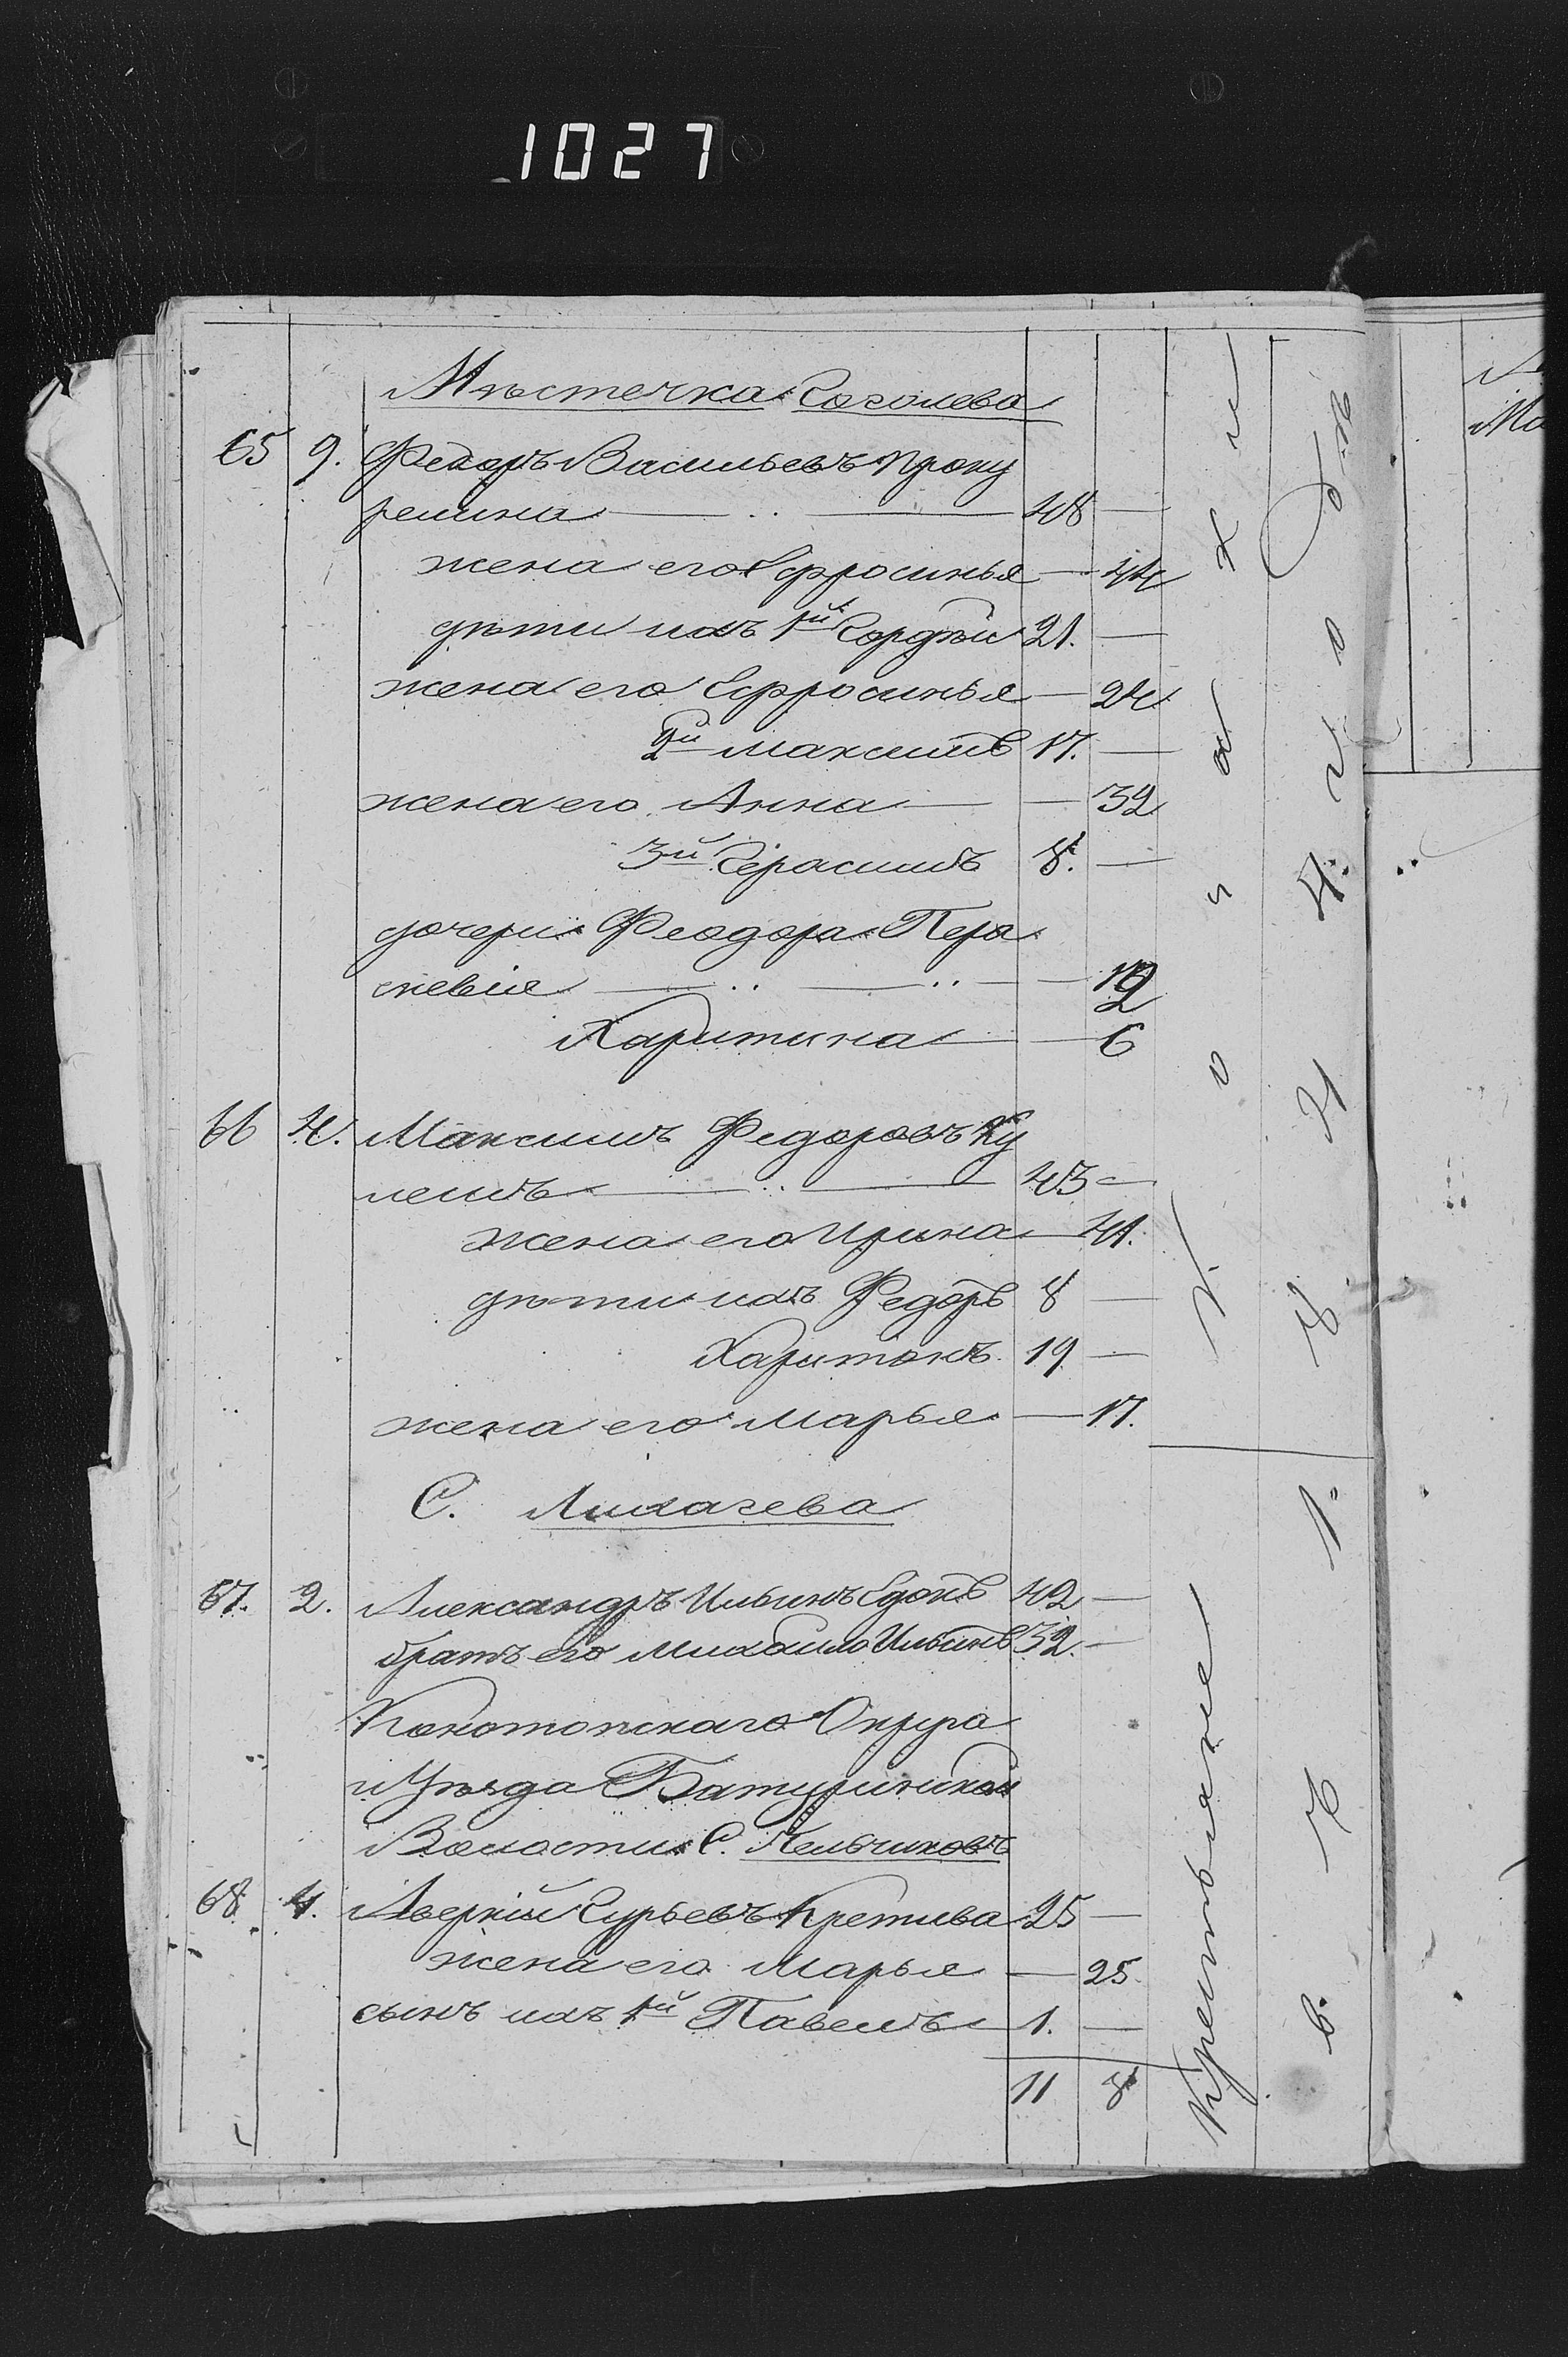 1027
Мѣстечка Гоголева
65 9. Федоръ Васильевъ Проку
релина 48 —
жена его Ефросинья — 44
дѣти ихъ 1й Гордѣй 21. —
жена его Ефросинья — 24
2й Максимъ 17. —
жена его Анна — 32
3й Герасимъ 8. —
дочери Феодора Пера
скевія — 12
Харитина — 6
66 4. Максимъ Федоровъ Ку
лешъ 43 —
жена его Ирина — 41.
дѣти ихъ Федоръ 8 —
Харитонъ 19 —
жена его Марья — 17.
С. Лихачева
67. 2. Александръ Ильинъ 42 —
братъ его Михайло Ильинъ 32. —
Конотопскаго Округа
и Уѣзда Батуринской
Волости С.
68 4. Аверкій Гурьевъ 25 —
жена его Марья — 25.
сынъ ихъ 1й Павелъ 1. —
11 8
Козачки
Крестьяне
Ма